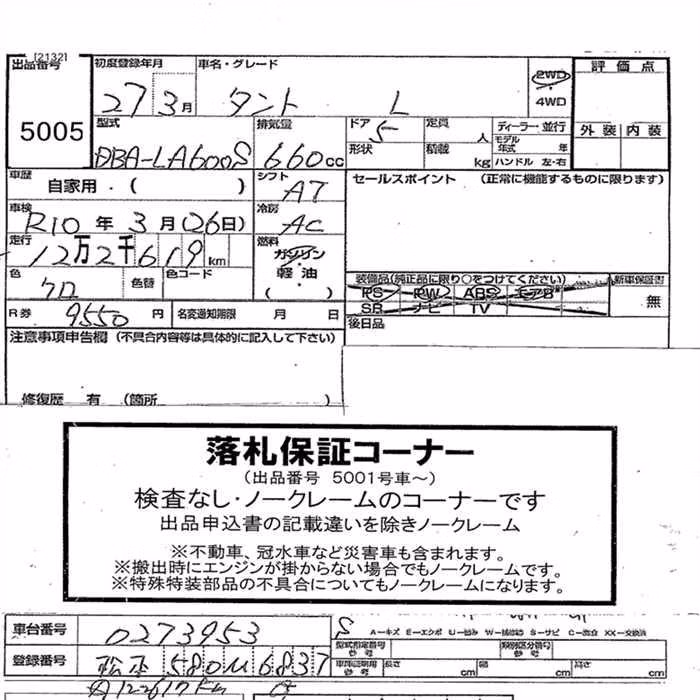 [2132]
出品番号 初度登録年月 車名・グレード 2WD・4WD 評価点
5005 27 3月 タント L
型式 排気量 ドア 定員 人 ディーラー・並行 外装 内装
DBA-LA600S 660cc 5 形状 積載 kg モデル年式 年 ハンドル 左・右
車歴 自家用・( ) シフト AT セールスポイント (正常に機能するものに限ります)
車検 R10年 3月(26日) 冷房 AC
走行 12万2千619km 燃料 ガソリン・軽油・( )
色 クロ 色替 色コード 装備品(純正品に限り○をつけてください) 新車保証書
PS PW ABS エアB 無
SR ナビ TV
R券 9550円 名変通知期限 月 日 後日品
注意事項申告欄 (不具合内容等は具体的に記入して下さい)
修復歴 有 (箇所 )
落札保証コーナー
(出品番号 5001号車～)
検査なし・ノークレームのコーナーです
出品申込書の記載違いを除きノークレーム
※不動車、冠水車など災害車も含まれます。
※搬出時にエンジンが掛からない場合でもノークレームです。
※特殊特装部品の不具合についてもノークレームになります。
車台番号 0273953 S A－キズ E－エクボ U－凹み W－補修跡 S－サビ C－腐食 XX－交換済
登録番号 松本 580 ム 6837 型式指定番号 参考 類別区分番号 参考
車庫証明用 参考 長さ cm 幅 cm 高さ cm